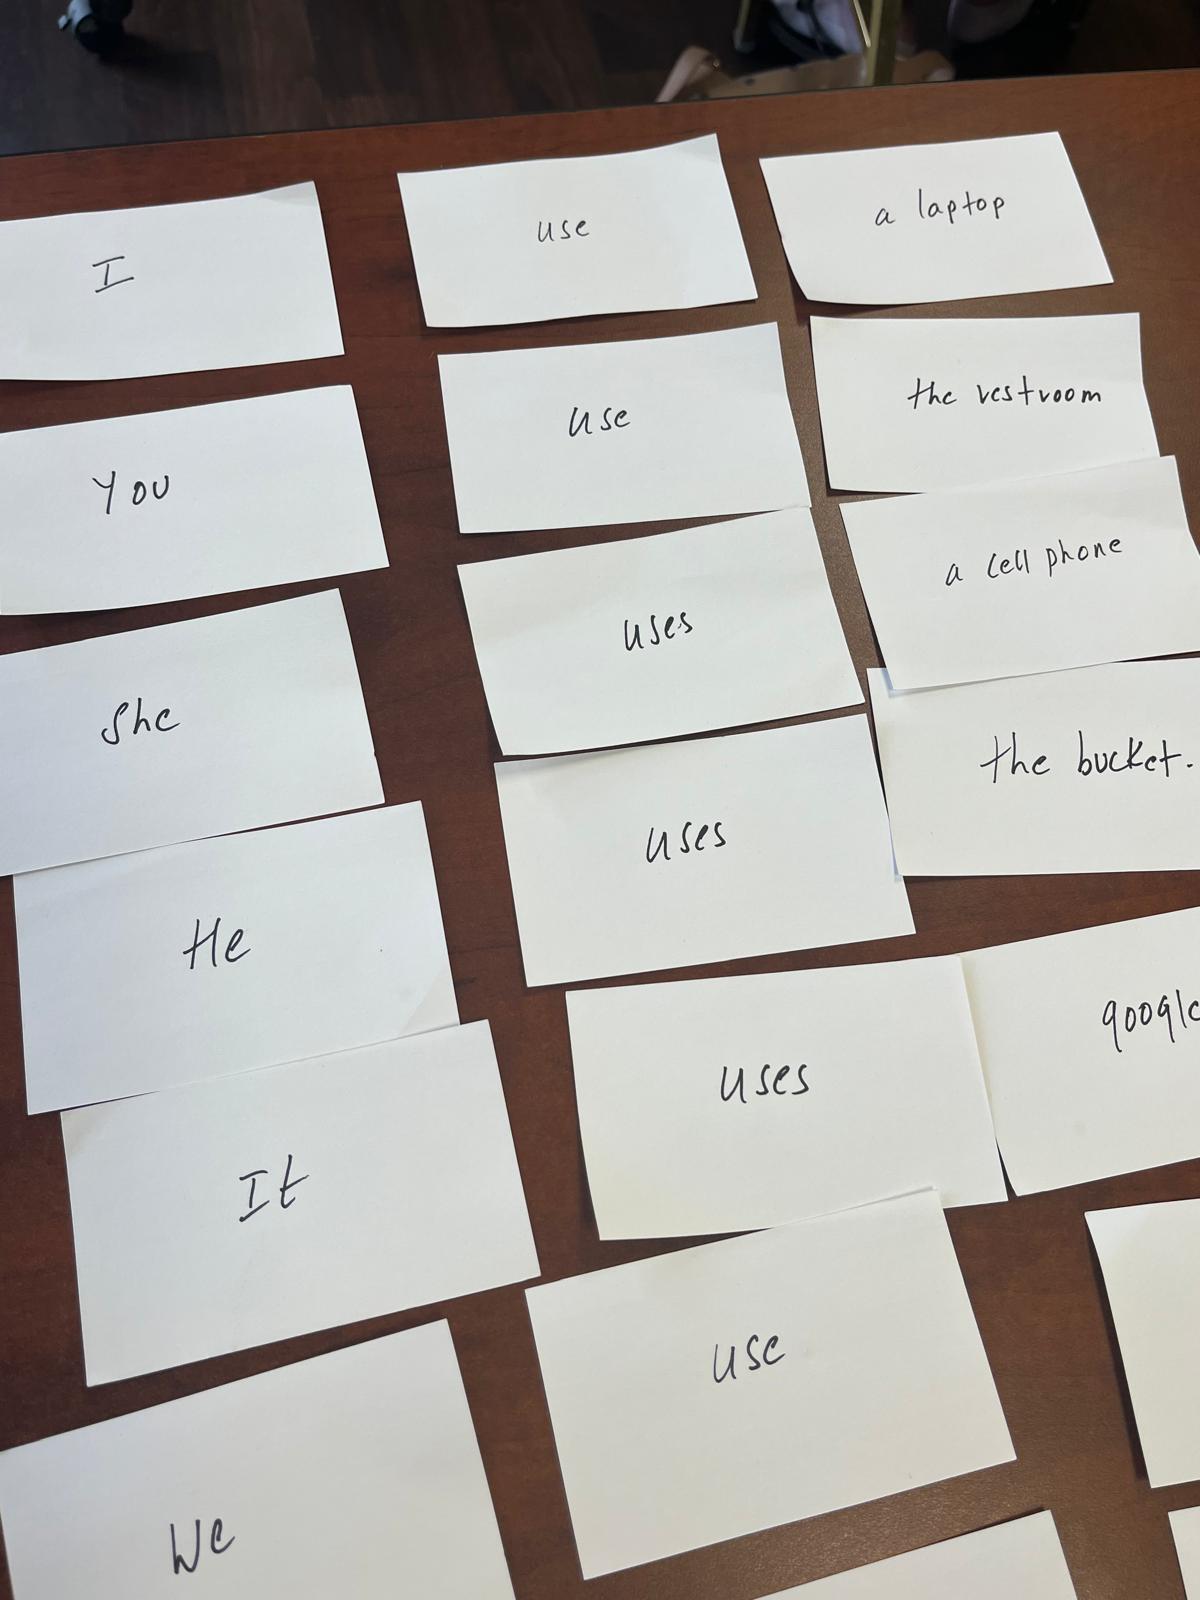 I use a laptop
You use the restroom
She uses a cell phone
He uses the bucket.
It uses google
We use